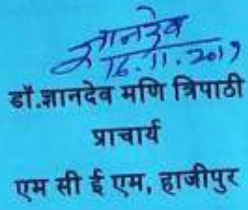 ज्ञानदेव
16.11.2019
डॉ.ज्ञानदेव मणि त्रिपाठी
प्राचार्य
एम सी ई एम, हाजीपुर